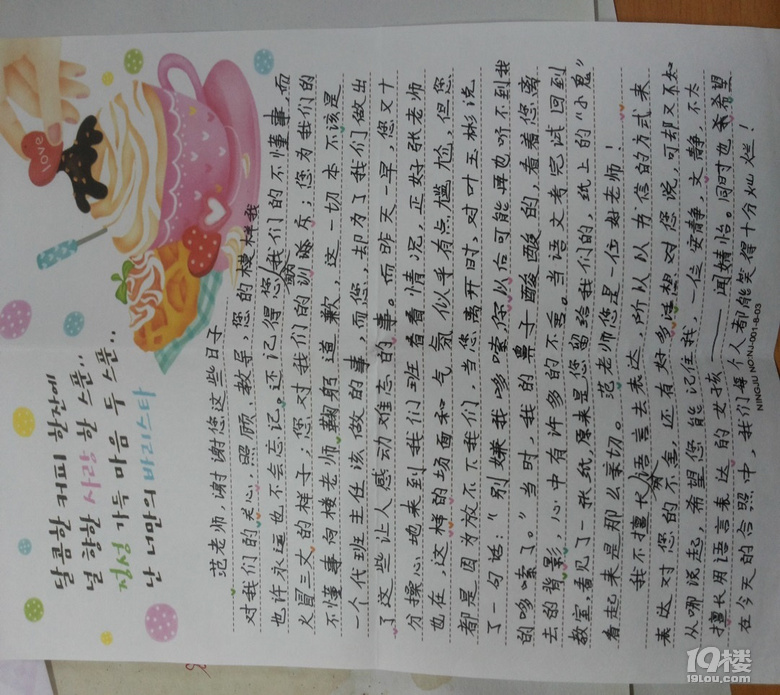 달콤한 커피 한잔에
널 향한 사랑 한 스푼..
정성 가득 마음 두 스푼..
난 너만의 바리스타
love
范老师，谢谢您这些日子
对我们的关心，照顾，教导，您的模样我
也许永远也不会忘记。还记得您因我们的不懂事，而
火冒三丈的样子；您对我们的训斥；您为我们的
不懂事向楼老师鞠躬道歉，这一切本不该是
一个代班主任该做的事，而您，却为了我们做出
了这些让人感动难忘的事。而昨天一早，您又十
分操心地来到我们班看看情况，正好张老师
也在，这样的场面和气氛似乎有点尴尬，但您
都是因为放不下我们，当您离开时，对叶王彬说
了一句话：“别嫌我哆嗦，你以后可能再也听不到我
的哆嗦了。”当时，我的鼻子酸酸的，看着您离
去的背影，心中有许多的不舍。当语文考完试回到
教室，看见了一张纸，原来是您留给我们的，纸上的“小鬼”
看起来是那么亲切。范老师您是一位好老师！
我不擅长用语言去表达，所以以为信的方式来
表达对您的不舍，还有好多话想对您说，可却又不知
从哪说起，希望您能记住我，一位安静，文静，不太
擅长用语言表达的女孩——闻婧怡。同时也希望
在今天的合照中，我们每个人都能笑得十分灿烂！
NINGJU NO:NJ-001-8-03
19楼
19lou.com